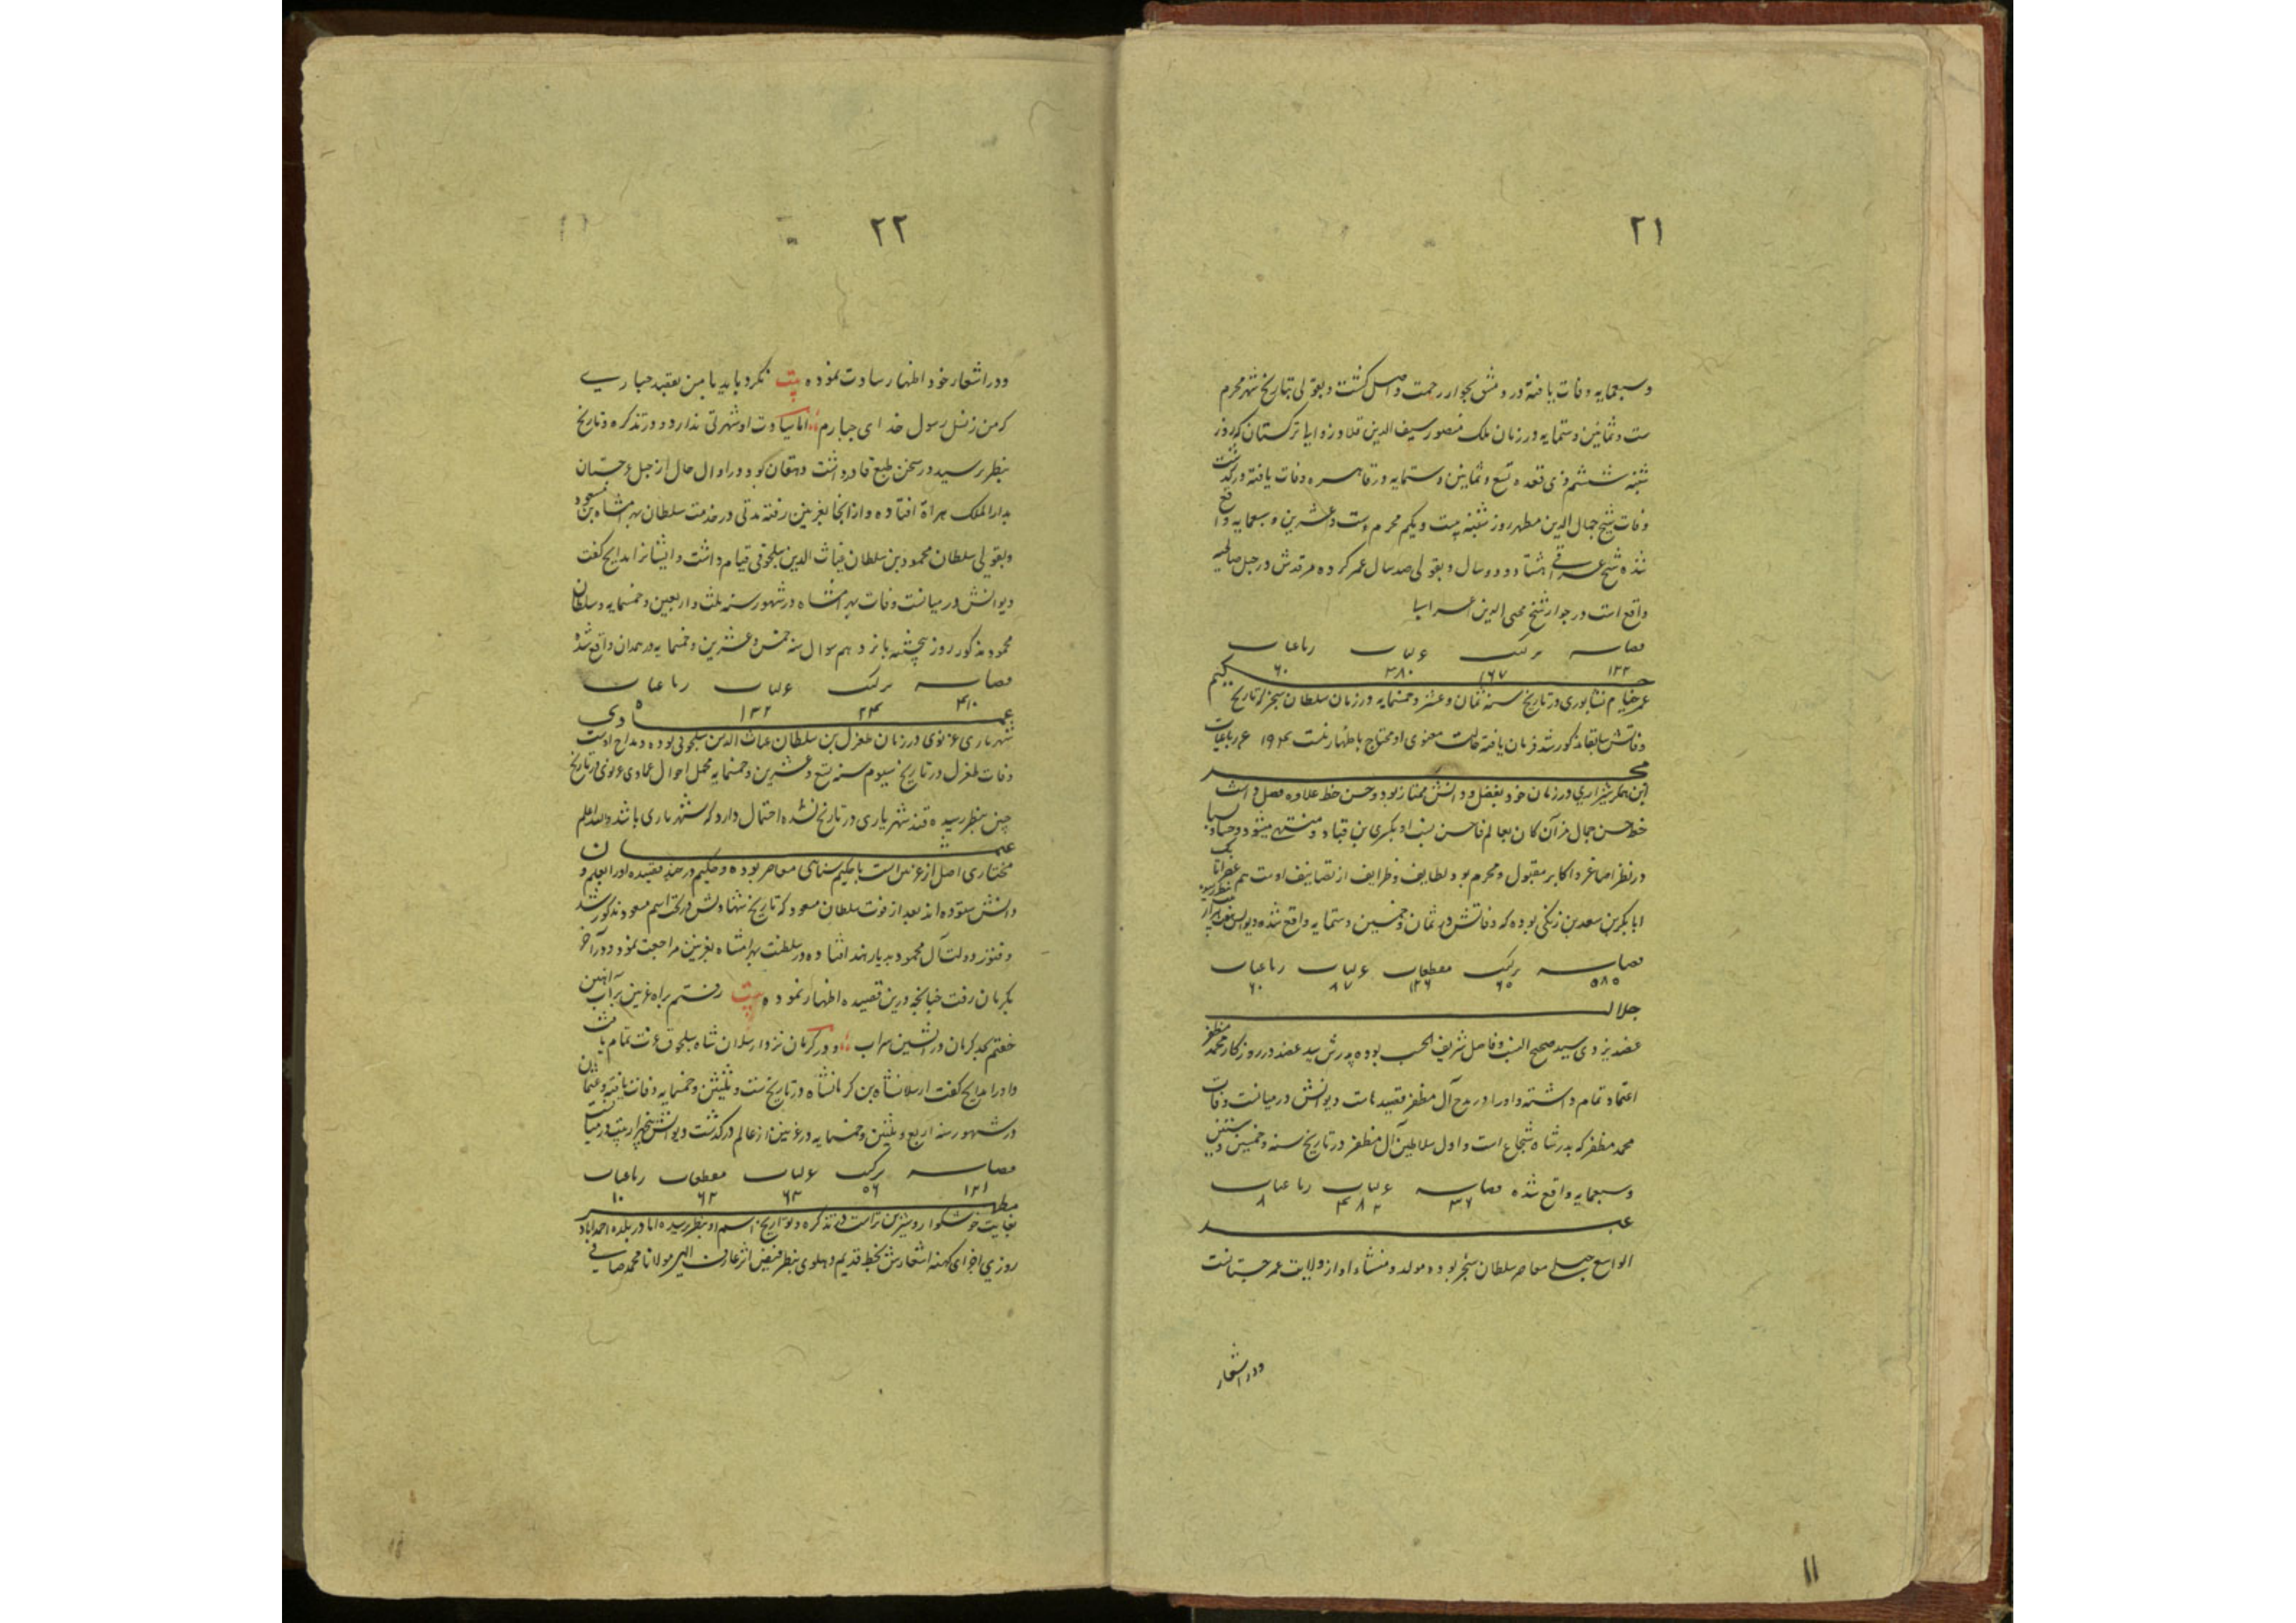 ۲۱
وسبعمایه وفات یافته در دمشق بجوار رحمت واصل گشت و بقولی بتاریخ شهر محرم
ست و ثمانین و ستمایه در زمان ملک منصور سیف الدین قلاوز والیا ترکستان که روز
شنبه ششم ذی قعده تسع و ثمانین و ستمایه در قاهره وفات یافته در گذشت
وفات شیخ جمال الدین مطهر روز شنبه بیست و یکم محرم ست و عشرین و سبعمایه واقع
شده شیخ عراقی هشتاد و دو سال و بقولی صد سال عمر کرده مرقدش در جبل صالحیه
واقع است در جوار شیخ محیی الدین اعرابیا
قصاید ترکیب غزلیات رباعیات
۱۲۲ ۱۶۷ ۳۸۰ ۶۰
حکیم
عمر خیام نشابوری در تاریخ سنه ثمان و عشر و خمسمایه در زمان سلطان سنجر که تاریخ
وفاتش سابقا مذکور شد فرمان یافته حالت معنوی او محتاج باظهار نیست ۱۹۴ عدد رباعیات
مجد
ابن همگر شیرازی در زمان خود بفضل و دانش ممتاز بود و حسن خط علاوه فضل داشت
خط حسن جمال مرآن کان بعالم فاحسن نسب او بکسری بن قباد منتهی میشود و
در نظر اصاغر و اکابر مقبول و محرم بود لطایف و ظرایف از تصانیف اوست هم عصر اتابک
ابابکر بن سعد بن زنگی بوده که وفاتش در ثمان و خمسین و ستمایه واقع شده دیوانش
قصاید ترکیب مقطعات غزلیات رباعیات
۵۸۵ ۶۵ ۱۲۶ ۸۷ ۶۰
جلال
عضد یزدی سید صحیح النسب و فاضل شریف الحسب بوده پدرش سید عضد در روزگار محمد مظفر
اعتماد تمام داشته و او را در مدح آل مظفر قصیدهاست دیوانش در میانست وفات
محمد مظفر که پدر شاه شجاع است و اول سلاطین آل مظفر در تاریخ سنه و خمسین و ستین
وسبعمایه واقع شده قصاید غزلیات رباعیات
۳۶ ۴۸۲ ۸
عبد
الواسع جبلی معاصر سلطان سنجر بوده مولد و منشاء او از ولایت غرجستانست
ودر اشعار
۱۱
۲۲
ودر اشعار خود اظهار سیادت نموده بیت نگرد باید با من بعقید جباری
که من ز نسل رسول خدای جبارم اما سیادت او شهرتی ندارد و در تذکره و تاریخ
بنظر نرسید در سخن طبع قادر داشت دهقان کو در اوال حال از جبل غرجستان
بدار الملک هراة افتاده و از انجا بغزنین رفته مدتی در خدمت سلطان بهرامشاه بن مسعود
و بقولی سلطان محمود بن سلطان غیاث الدین سلجوقی قیام داشت و ایشانرا مدایح گفت
دیوانش در میانست وفات بهرامشاه در شهور سنه ثلث و اربعین و خمسمایه و سلطان
محمود مذکور روز پنجشنبه پانزدهم شوال سنه خمس و عشرین و خمسمایه در همدان واقع شد
قصاید ترکیب غزلیات رباعیات
۴۱۰ ۲۴ ۱۳۲ ۵
عمادی
شهریاری غزنوی در زمان طغرل بن سلطان غیاث الدین سلجوقی بوده و مداح اوست
وفات طغرل در تاریخ سیوم سنه تسع و عشرین و خمسمایه مجمل احوال عمادی غزنوی در تاریخ
چنین بنظر رسیده قید شهریاری در تاریخ نشده احتمال دارد که شهریاری باشد والله اعلم
عثمان
مختاری اصل از غزنین است با حکیم سنای معاصر بوده و حکیم در چند قصیده او را بعلم و
دانش ستوده اند بعد از فوت سلطان مسعود که تاریخ شهادتش در تحت اسم مسعود مذکور شد
و فتور دولت آل محمود بدیار هند افتاده در سلطنت بهرامشاه بغزنین مراجعت نمود و در آخر
بکرمان رفت چنانچه درین قصیده اظهار نموده بیت رفتم براه غزنین بر آب آتشین
خفتم بحد کرمان در آتشین سراب ودر کرمان نزد ارسلان شاه سلجوقی عزت تمام یافت
و او را مدایح گفت ارسلانشاه بن کرمانشاه در تاریخ ست و ثلثین و خمسمایه وفات یافته و عثمان
در شهور سنه اربع و ثلثین و خمسمایه در غزنین از عالم در گذشت دیوانش پنجهزار بیت در میانست
قصاید ترکیب غزلیات مقطعات رباعیات
۱۲۱ ۵۶ ۶۳ ۶۲ ۱۰
مطهر
بغایت خوشگوار و شیرین تراست در تذکره و تواریخ اسم او بنظر رسیده اما در بلده احمداباد
روزی اجزای کهنه اشعارش بخط قدیم و پهلوی بنظر فیض اثر عارف الهی مولانا محمد صافی